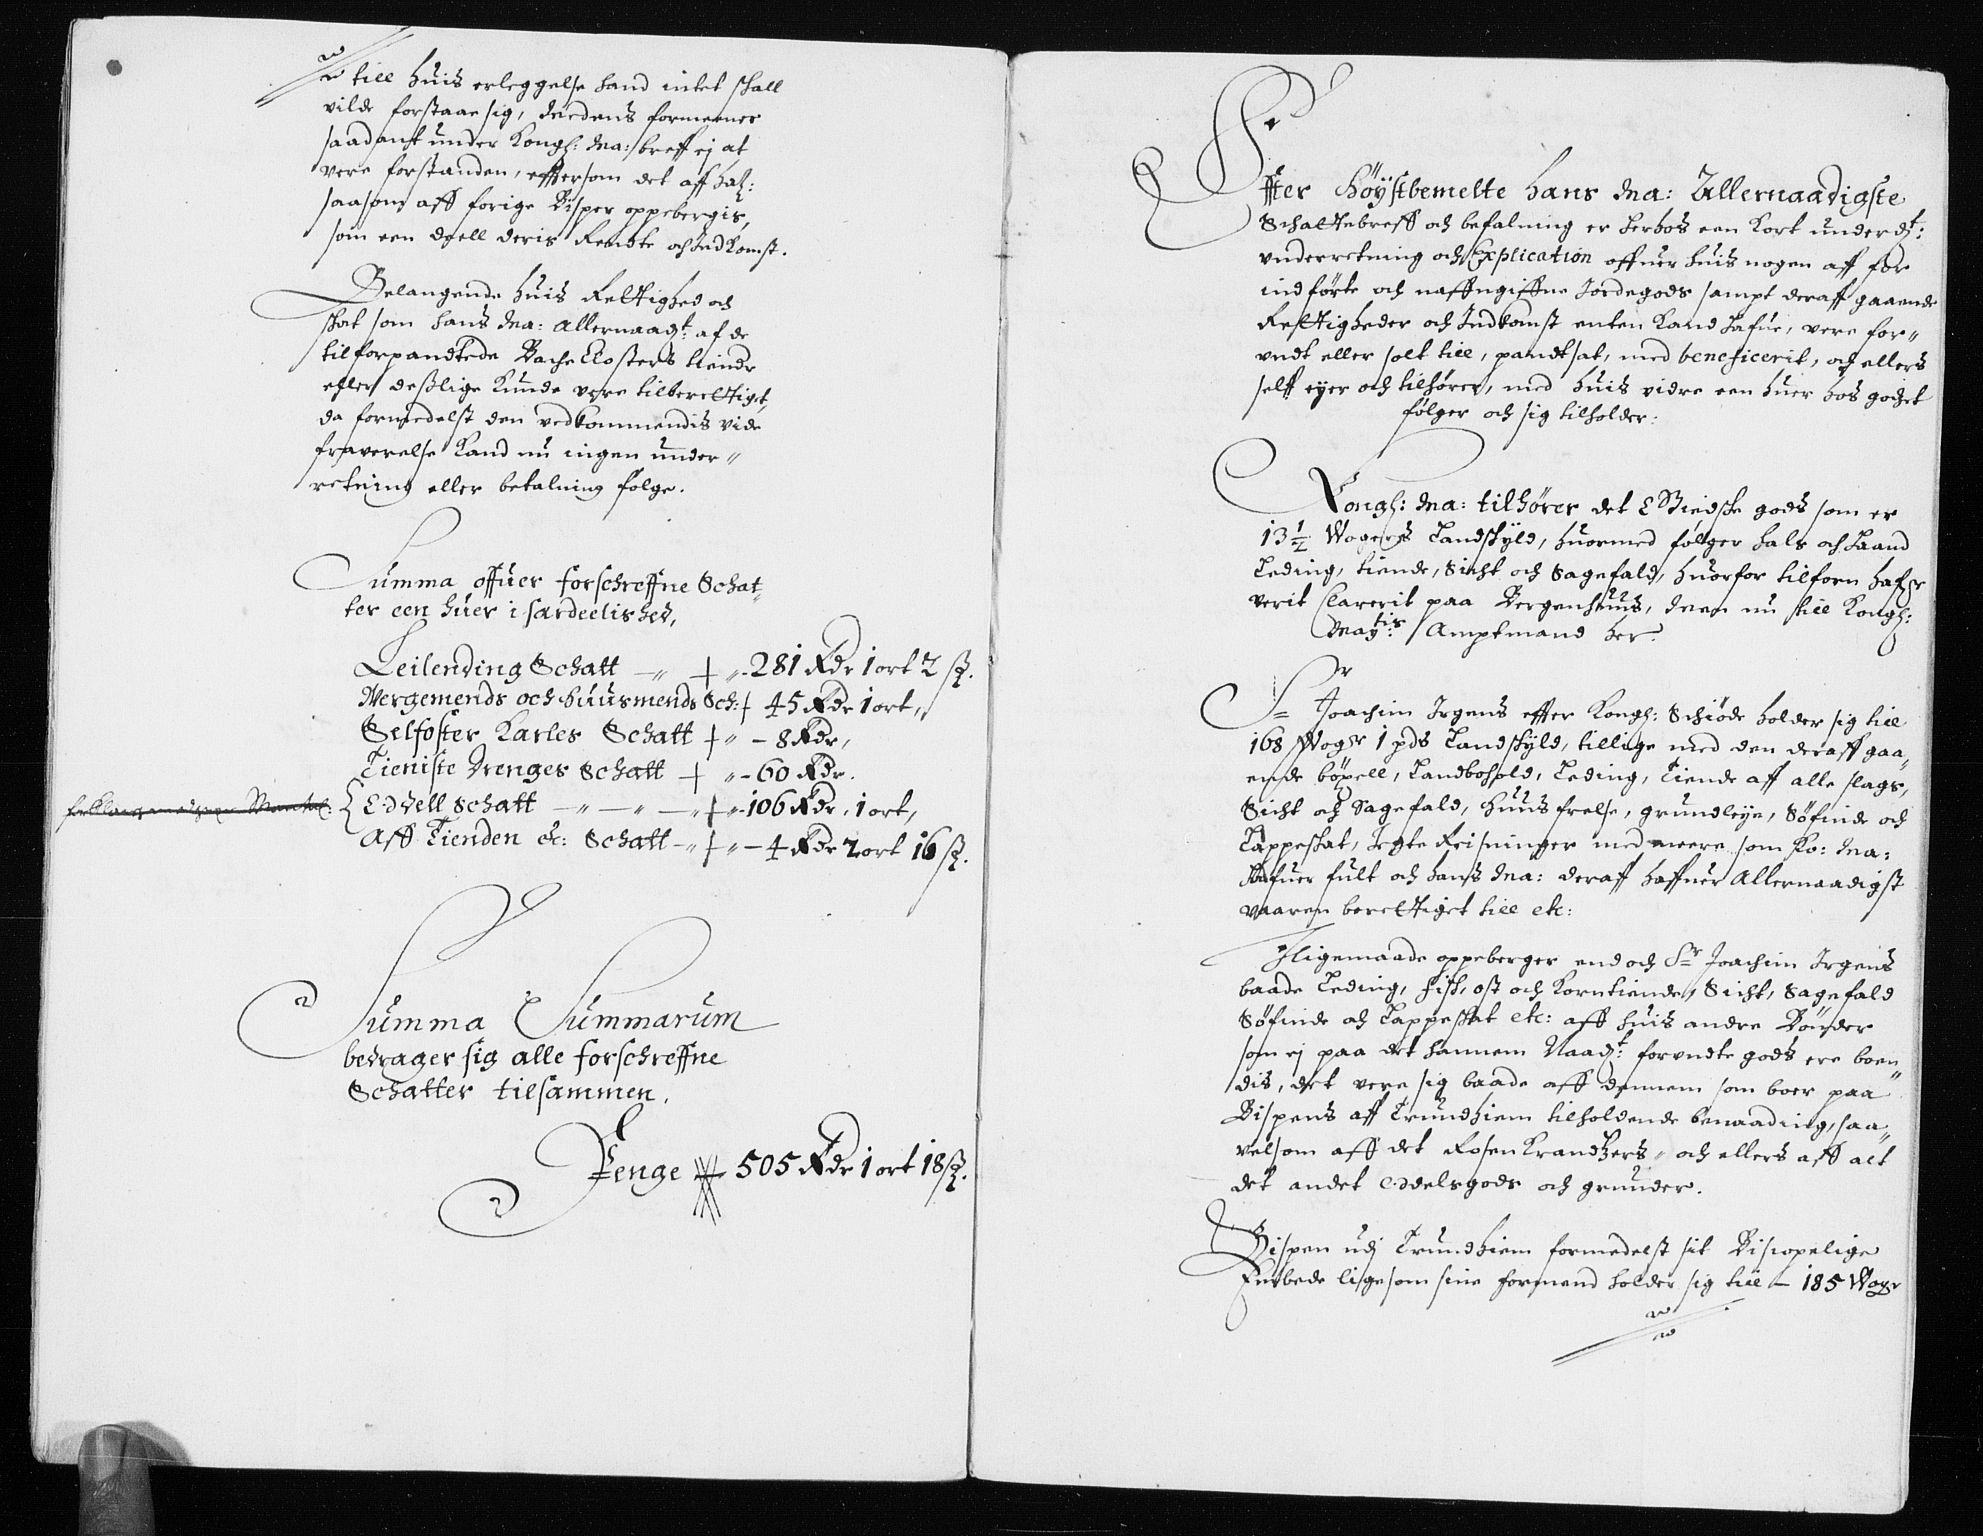 till huis erleggelse hand intet skall
vilde forstaae sig, Medens formeener
saadant under Kongl: Ma: breff ej at
vere forstanden, effersom det aff ha:
saasom aff forige Bisper oppebergis,
som een deell deris Rendte och Indkomst.
Belangende huis Rettighed och
skat som hans Ma: allernaadt: af de
tilforpandtede Bache Closters tiende
eller desslige kunde vere tilberettiget,
da formedelst den vedkommendis vide
fraverelse kand nu ingen under"
retning eller betalning følge.
Summa offuer forschreffne Schat"
ter een huer i særdeelished,
Leilending Schatt — + 281 Rdr 1 ort 2 sz.
Vergemends och huusmends Sch: + 45 Rdr 1 ort,
Selfoster Karles Schatt + — 8 Rdr,
Tieniste Drenges Schatt + — 60 Rdr.
Eddell Schatt — + 106 Rdr, 1 ort,
Aff Tienden etc: Schatt — + — 4 Rdr 2 ort 16 sz.
Summa Summarum
bedrager sig alle forschreffne
Schatter tilsammen.
Penge 505 Rdr 1 ort 18 sz.
Effter Høystbemelte hans Ma: Allernaadigste
Schattebreff och befalning er herhos een kort underdt:
underretning och Explication offuer huis nogen aff for
indførte och naffngiffne Jordegods sampt deraff gaaende
Rettigheder och Indkomst enten kand hafue, vere for"
undt eller solt till, pandtsat, med beneficerit, och ellers
self eyer och tilhører, med huis vidre een huer hos godset
følger och sig tilholder:
Kongl: Ma: tilhører det Giedske gods som er
13 1/2 Wogers Landskyld, huormed følger hals och haand
Leding, tiende, Sicht och Sagefald, huorfor tilforn hafr
verit Clarerit paa Bergenhuus, Men nu till Kongl:
Maytis: Amptmand her.
Sr Joachim Irgens effter Kongl: Schiøde holder sig till
168 Woger 1 pds Landskyld, tillige med den deraff gaa"
ende böxell, Landbohold, Leding, Tiende aff alle slags,
Sicht och Sagefald, huusfrelse, grundleye, Søfinde och
Lappeskat, Jegte Reisninger med meere som Ko: Ma:
hafuer fult och hans Ma: deraff haffuer Allernaadigst
vaaren berettiget till etc:
Iligemaade oppeberger end och Sr Joachim Irgens
baade Leding, fisk, ost och Korntiende, Sicht, Sagefald
Søfinde och Lappeskat etc: aff huis andre Bønder
som ej paa det hannem Naadt: forundte gods ere boen"
dis, det vere sig baade aff dennem som boer paa
Bispens aff Trundhiem tilholdende benaading, saa"
velsom aff det Rosenkrandtzers, och ellers aff alt
det andet Eddelsgods och grunder.
Bispen udj Trundhiem formedelst sit Biscopelige
Embede ligesom sine formend holder sig till — 185 Woger